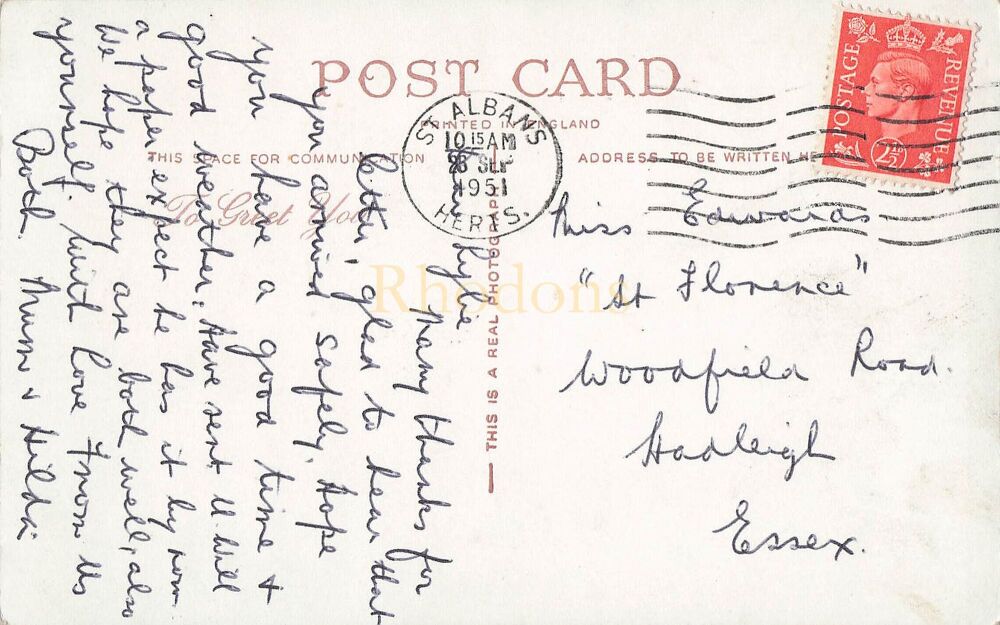 POST CARD
PRINTED IN ENGLAND
THIS SPACE FOR COMMUNICATION
ADDRESS TO BE WRITTEN HE
To Greet You
THIS IS A REAL PHOTOGRAP
ST ALBANS
10 15 AM
SEP
1951
HERTS.
POSTAGE
REVENUE
2½
Rhodons
Many thanks for
letter, glad to hear that
you arrived safely, hope
you have a good time &
good weather, Have sent U. Will
a paper expect he has it by now
We hope they are both well, also
yourself. with love from Us
Both. Mum & Hilda.
Miss Edwards
"St Florence"
Woodfield Road.
Hadleigh
Essex.